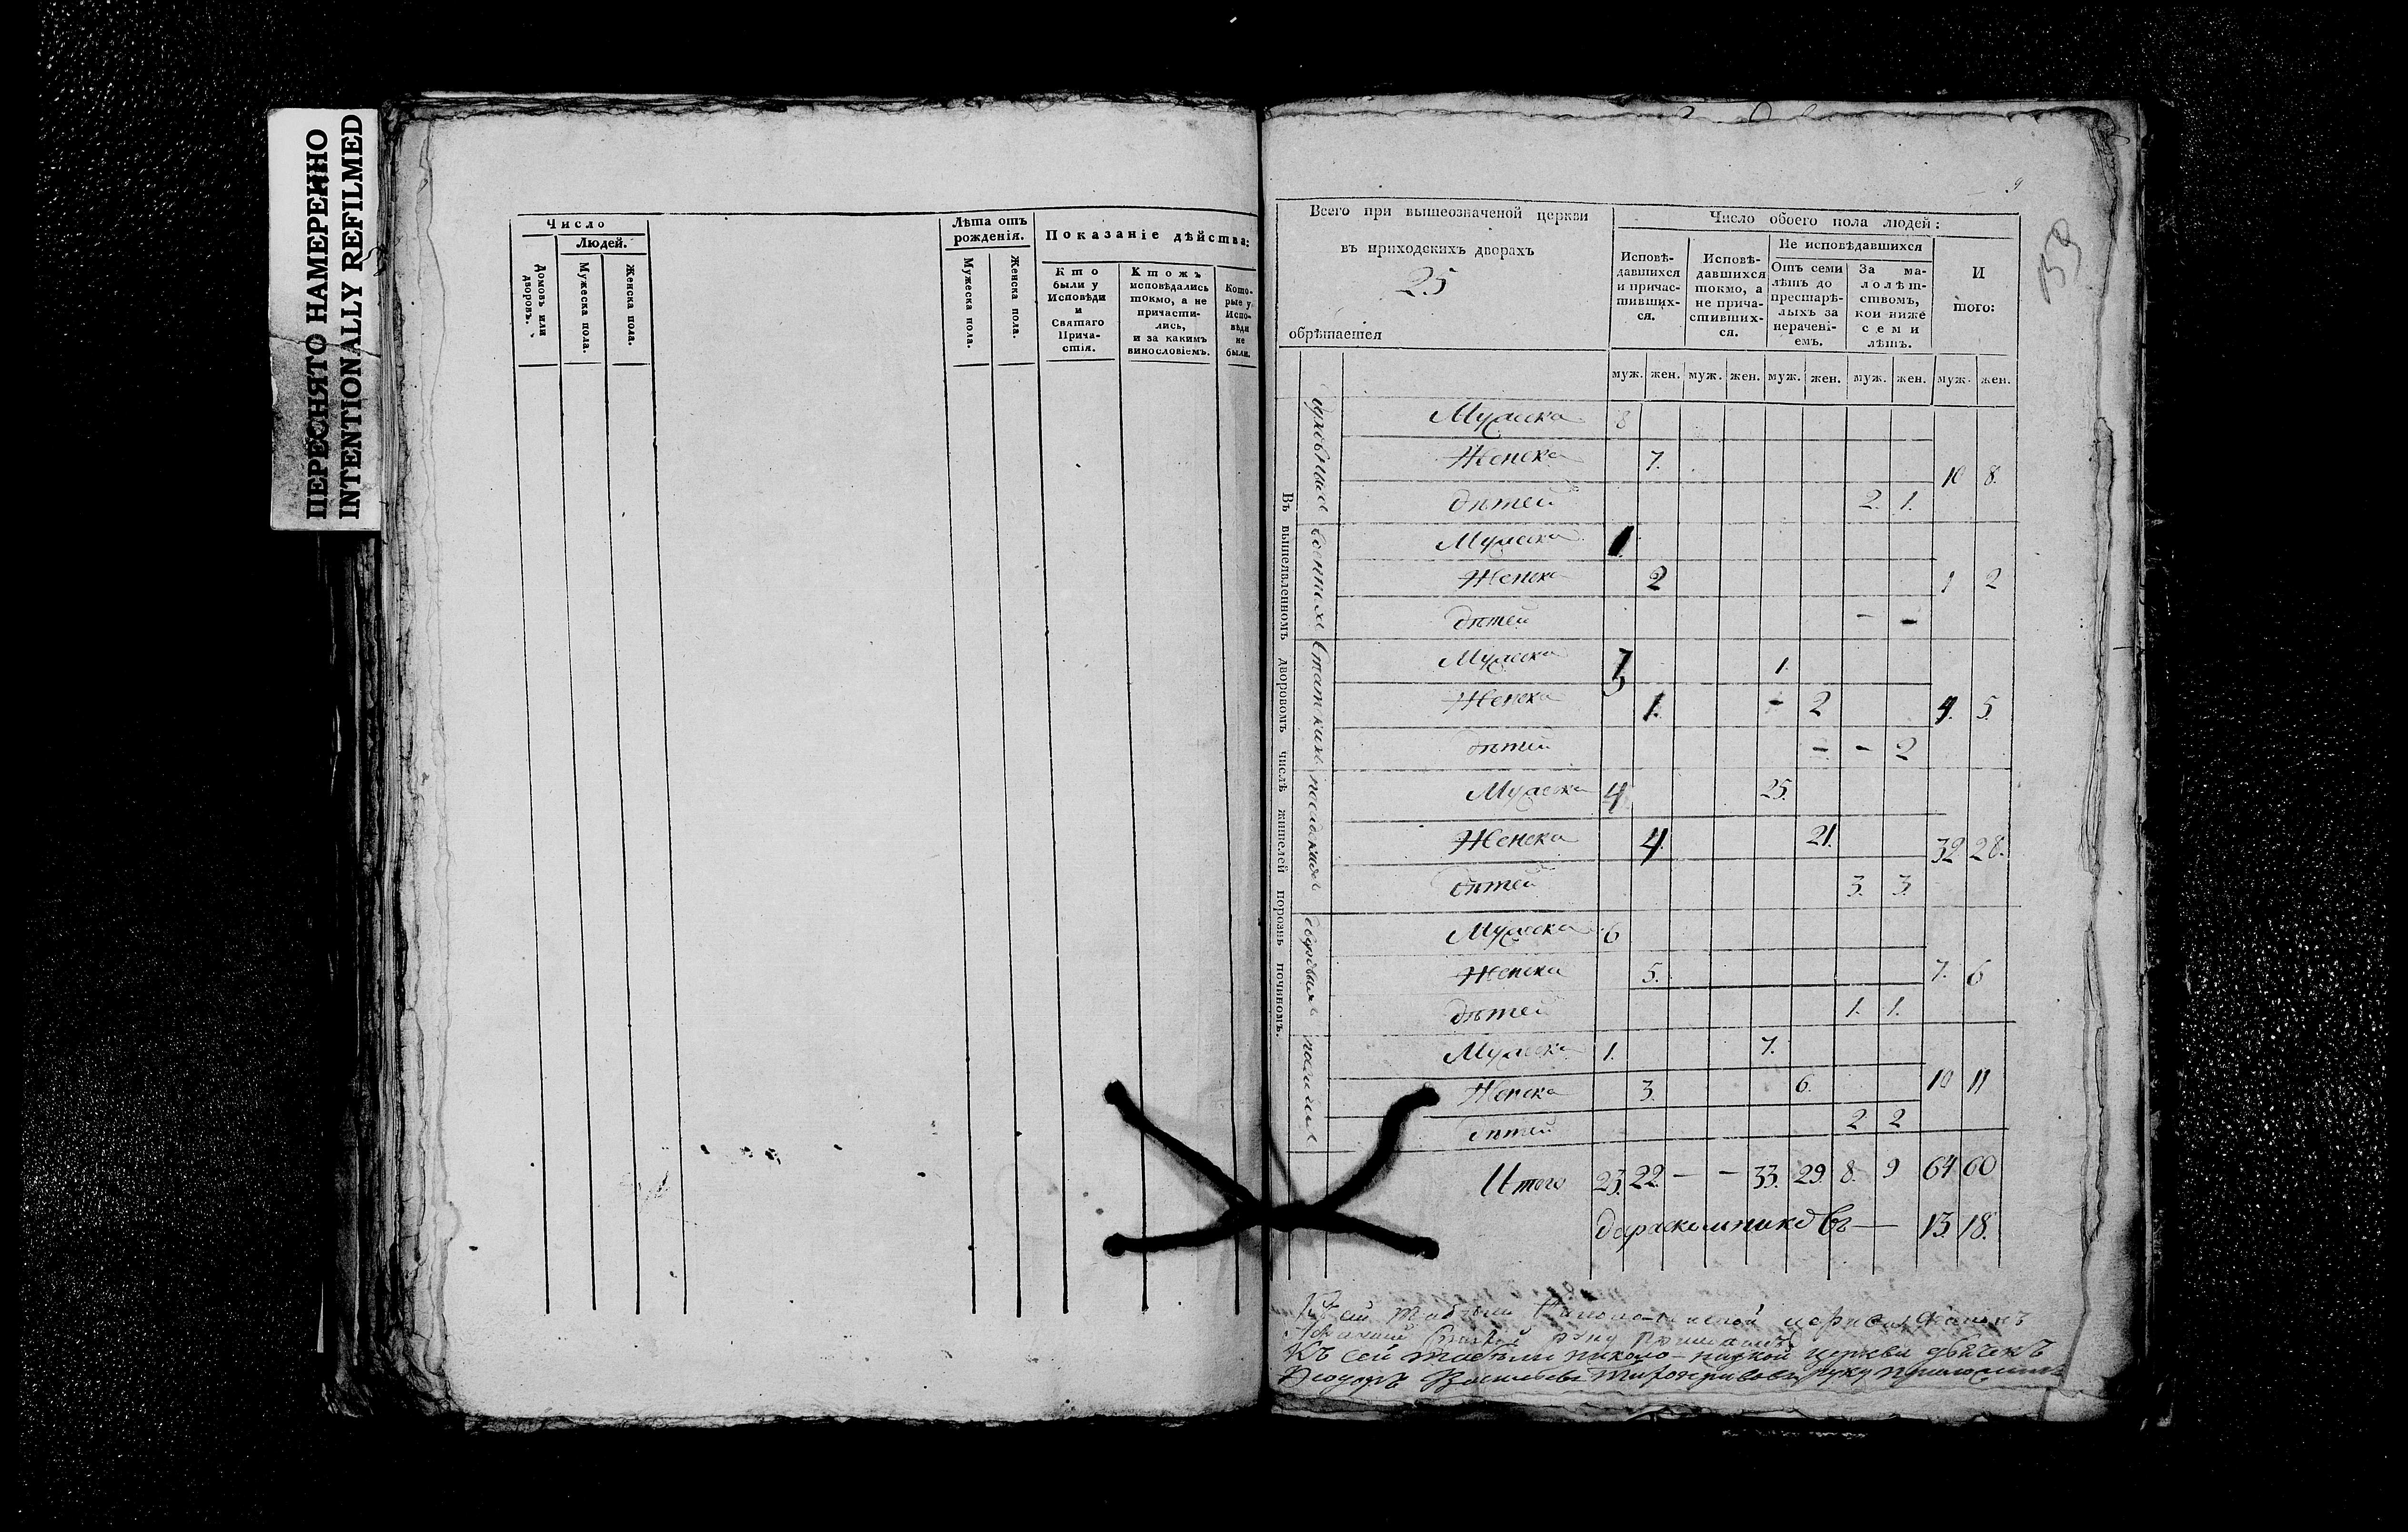 ПЕРЕСНЯТО НАМЕРЕННО
INTENTIONALLY REFILMED
Число
Людей.
Домовъ или дворовъ.
Мужеска пола.
Женска пола.
Лѣта отъ рожденія.
Мужеска пола.
Женска пола.
Показаніе дѣйства:
Кто были у Исповѣди и Святаго Причастія.
Ктожъ исповѣдались токмо, а не причастились, и за какимъ винословіемъ.
Которые у Исповѣди не были.
9
Всего при вышеозначеной церкви
въ приходскихъ дворахъ
25
обрѣтается
Число обоего пола людей:
Исповѣдавшихся и причастившихся.
Исповѣдавшихся токмо, а не причастившихся.
Не исповѣдавшихся
Отъ семи лѣтъ до престарѣлыхъ за нерачені-емъ.
За малолѣтствомъ, кои ниже семи лѣтъ.
И того:
муж. жен. муж. жен. муж. жен. муж. жен. муж. жен.
Въ вышеявленномъ дворовомъ числѣ жителей порознь починомъ.
духовныхъ
Мужеска 8
Женска 7. 10 8.
дѣтей 2. 1.
военныхъ
Мужеска 1.
Женска 2 1 2
дѣтей - -
статскихъ
Мужеска 3 1.
Женска 1. - 2 4. 5.
дѣтей - - 2
посадскихъ
Мужеска 4 25.
Женска 4. 21. 32 28.
дѣтей 3. 3.
дворовыхъ
Мужеска 6
Женска 5. 7. 6
дѣтей 1. 1.
Мужеска 1. 7.
Женска 3. 6. 10 11
дѣтей 2 2
Итого 23. 22. — — 33. 29. 8. 9 64 60
да раскольниковъ — 13. 18.
Къ сей табели церкви
руку приложилъ
Къ сей табели церкви дьячекъ
Ѳеодоръ Васильевъ руку приложилъ